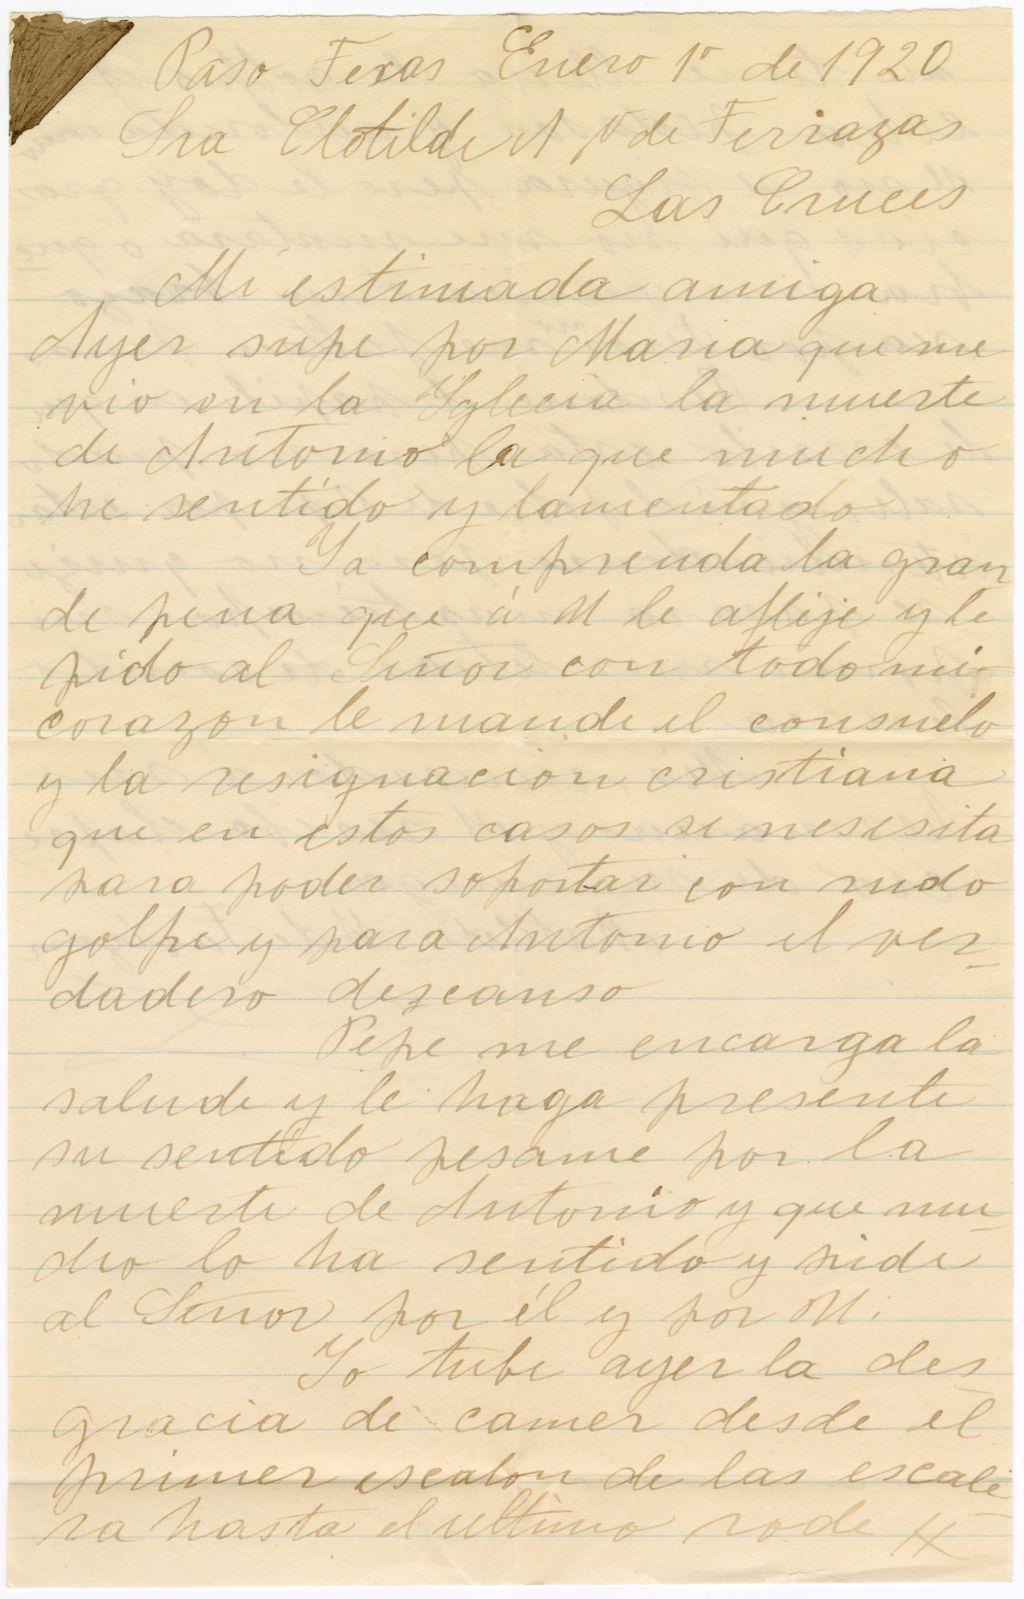 Paso Texas Enero 1º de 1920
Sra Clotilde A vda de Terrazas
Las Cruces
Mi estimada amiga
Ayer supe por Maria que me
vio en la Yglecia la muerte
de Antonio la que mucho
he sentido y lamentado
Ya comprenda la gran
de pena que á U le aflije y le
pido al Señor con todo mi
corazon le mande el consuelo
y la resignacion cristiana
que en estos casos se nesesita
para poder soportar con rudo
golpe y para Antonio el ver-
dadero descanso
Pepe me encarga la
salude y le haga presente
su sentido pesame por la
muerte de Antonio y que mu-
cho lo ha sentido y pide
al Señor por él y por U.
Yo tube ayer la des
gracia de camer desde el
primer escalon de las escale
ra hasta el ultimo rode